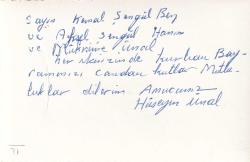 Sayın Kemal Şengül Bey
ve Aysel Şengül Hanım
ve Mükrime Ünal
her ikinizinde kurban Bay-
ramınızı candan kutlar Mutlu-
luklar dilerim Amucanız
Hüseyin Ünal
71